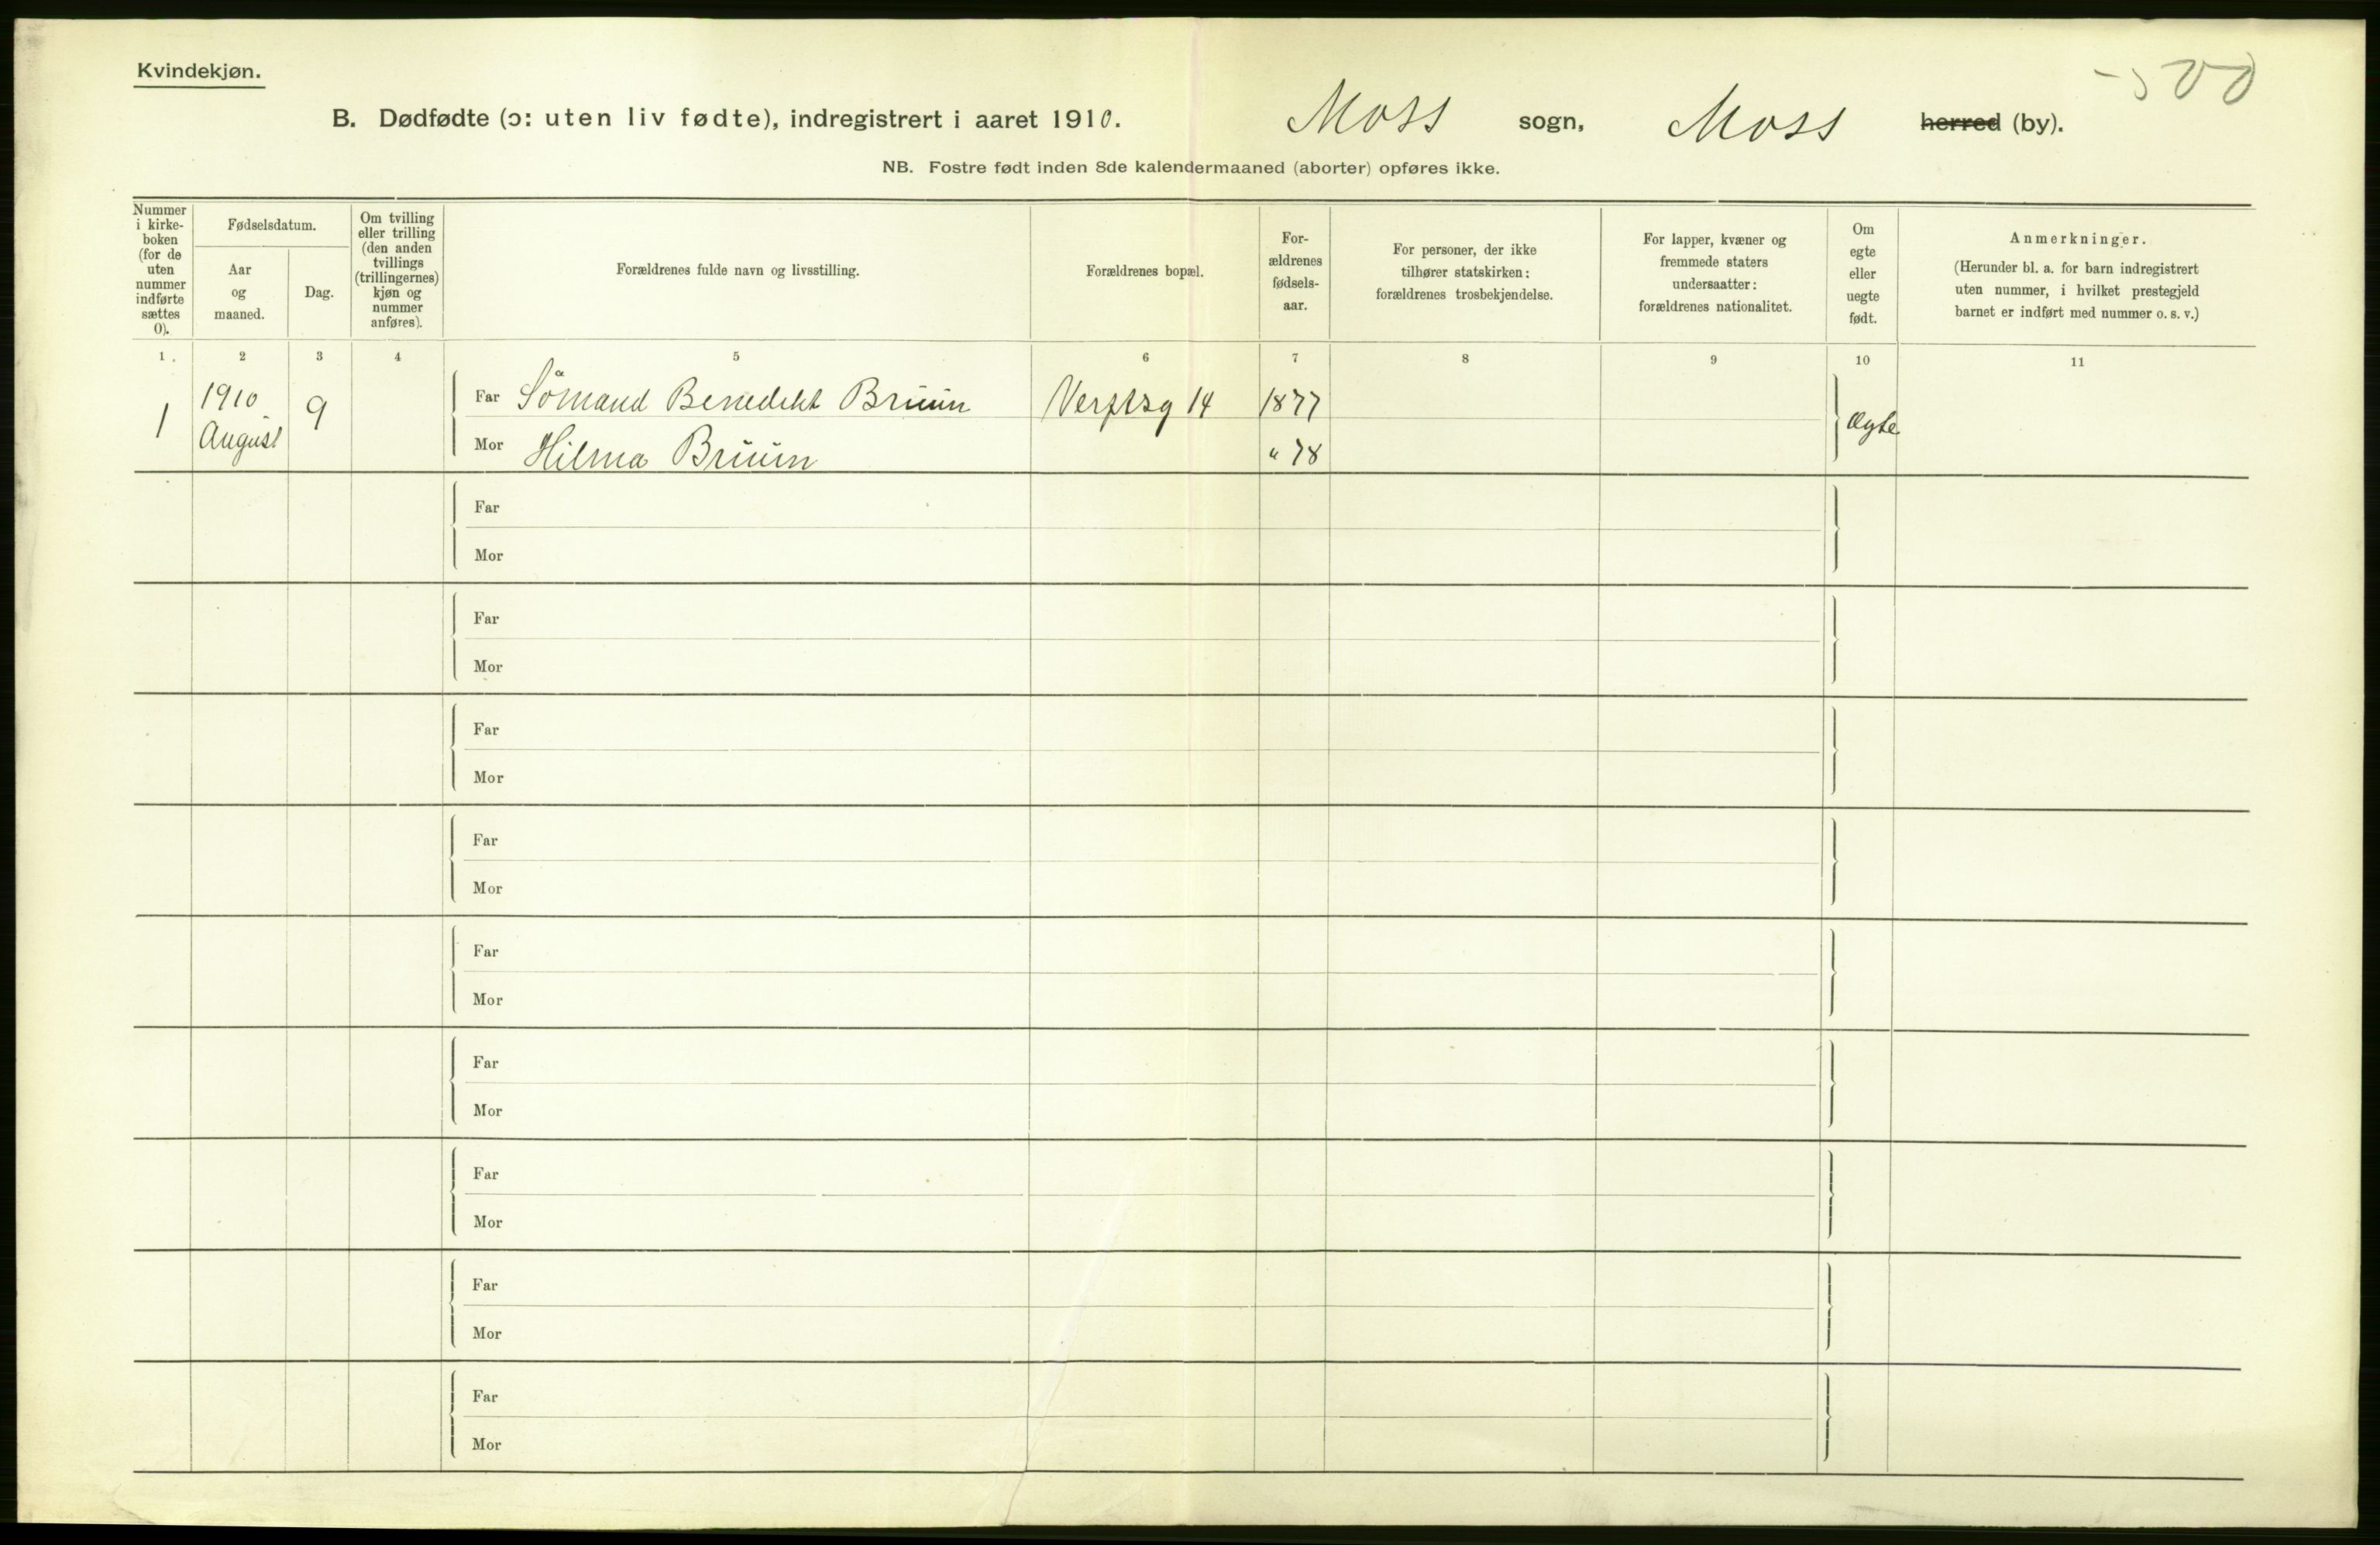 Kvindekjøn.
B. Dødfødte (ɔ: uten liv fødte), indregistrert i aaret 1910. Moss sogn, Moss herred (by).
NB. Fostre født inden 8de kalendermaaned (aborter) opføres ikke.
Nummer i kirke- boken (for de uten nummer indførte sættes 0).
Fødselsdatum.
Aar og maaned.
Dag.
Om tvilling eller trilling (den anden tvillings (trillingernes) kjøn og nummer anføres).
Forældrenes fulde navn og livsstilling.
Forældrenes bopæl.
For- ældrenes fødsels- aar.
For personer, der ikke tilhører statskirken: forældrenes trosbekjendelse.
For lapper, kvæner og fremmede staters undersaatter: forældrenes nationalitet.
Om egte eller uegte født.
Anmerkninger.
(Herunder bl. a. for barn indregistrert uten nummer, i hvilket prestegjeld barnet er indført med nummer o. s. v.)
1 2 3 4 5 6 7 8 9 10 11
1 1910 August 9 Far Sömand Benedikt Bruun Verftsg 14 1877 Ægte
Mor Hilma Bruun " 78
Far
Mor
Far
Mor
Far
Mor
Far
Mor
Far
Mor
Far
Mor
Far
Mor
Far
Mor
Far
Mor